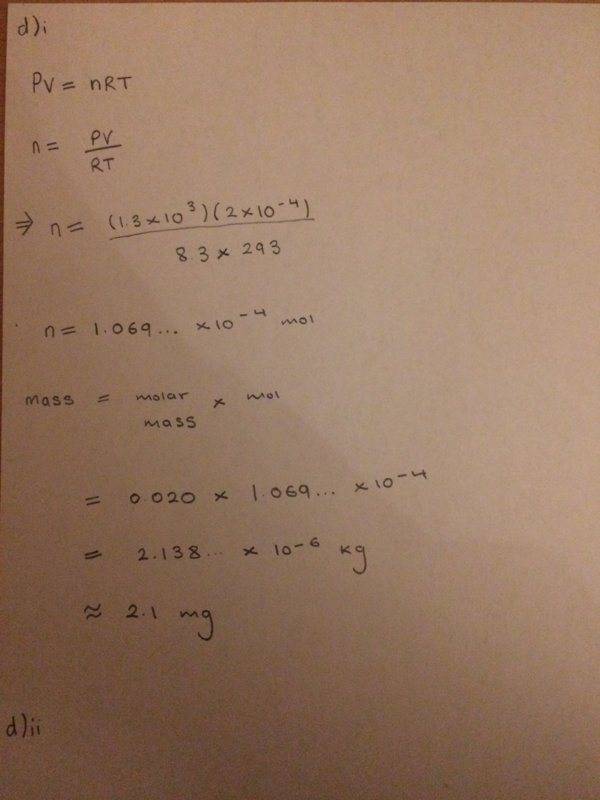 d)i
PV = nRT
n = PV/RT
⇒ n = (1.3 × 10³)(2 × 10⁻⁴)/8.3 × 293
n = 1.069... × 10⁻⁴ mol
mass = molar mass × mol
= 0.020 × 1.069... × 10⁻⁴
= 2.138... × 10⁻⁶ kg
≈ 2.1 mg
d)ii